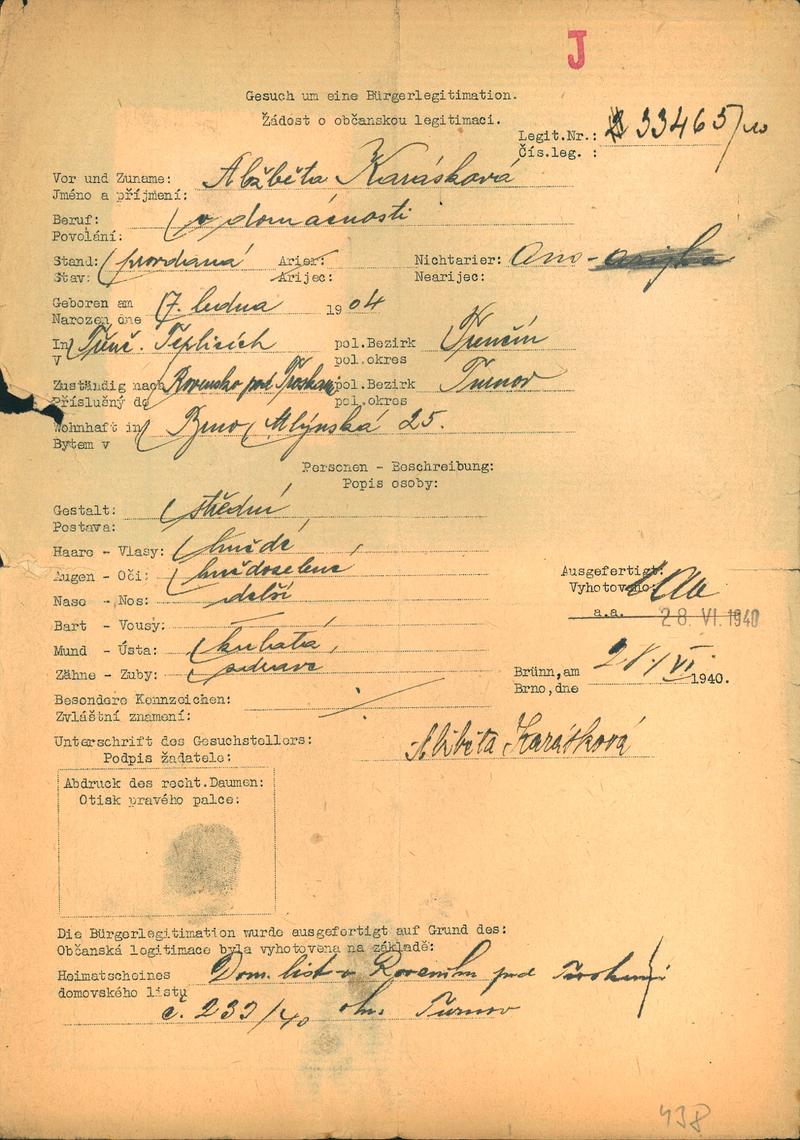 J
Gesuch um eine Bürgerlegitimation.
Žádost o občanskou legitimaci.
Legit.Nr.: 33465/40
Čís.leg. :
Vor und Zuname: Alžběta Karásková
Jméno a příjmení:
Beruf: v domácnosti
Povolání:
Stand: provdaná Arier: Nichtarier: Ano-
Stav: Arijec: Nearijec:
Geboren am 7. ledna 1904
Narozen dne
In Trenč. Teplicích pol.Bezirk Trenčín
V pol.okres
Zuständig nach Rovensko pod Troskami pol.Bezirk Turnov
Příslušný do pol.okres
Wohnhaft in Brno, Mlýnská 25.
Bytem v
Personen - Beschreibung:
Popis osoby:
Gestalt: střední
Postava:
Haare - Vlasy: hnědé
Augen - Oči: hnědozelené
Nase - Nos: delší
Bart - Vousy: —
Mund - Ústa:
Zähne - Zuby: zdravé
Ausgefertigt:
Vyhotoveno:
a.a. 28. VI. 1940
Brünn,am 28/VI 1940.
Brno,dne
Besondere Kennzeichen:
Zvláštní znamení:
Unterschrift des Gesuchstellers: Alžběta Karásková
Podpis žadatele:
Abdruck des recht.Daumen:
Otisk pravého palce:
Die Bürgerlegitimation wurde ausgefertigt auf Grund des:
Občanská legitimace byla vyhotovena na základě:
Heimatscheines Dom. list v Rovensku pod Troskami
domovského listu
č. 239/40 okr. Turnov
438